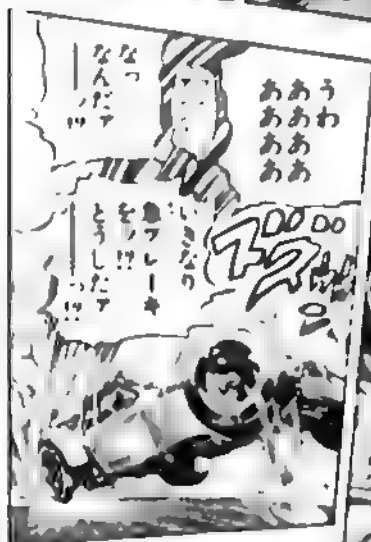 うわ
ああ
ああ
ああ
なっ
なんだァ
―ッ!!
いきなり
急ブレーキ
をッ!!
どうしたァ
―っ!!